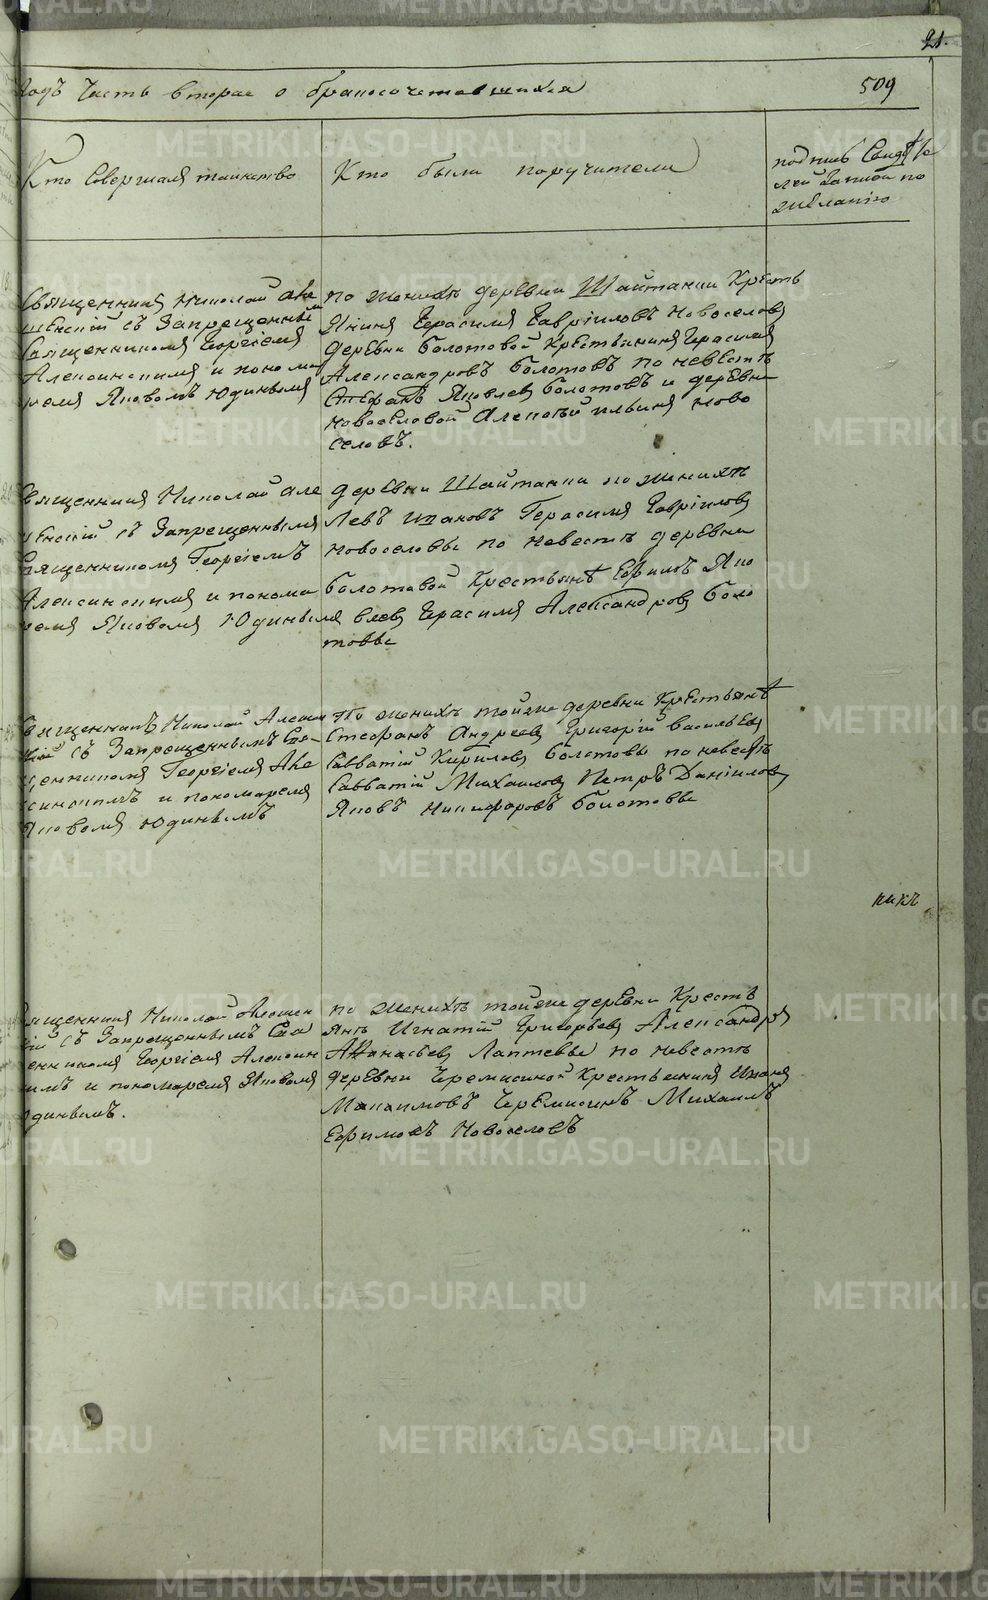 21.
годъ Часть вторая о бракосочетавшихся
509
Кто Совершалъ таинство
Кто были поручители
подпись Свидѣте
лей записи по
желанію
Священникъ Николай Але
шенскій съ Запрещеннымъ
Священникомъ Георгіемъ
и понома
ремъ Яковомъ Юдинымъ
по женихѣ деревни Шайтанки Кресть
янинъ Герасимъ Гавріиловъ Новоселовъ
деревни Болотовой Крестьянинъ Герасимъ
Александровъ Болотовъ по невѣстѣ
Стефанъ Яковлевъ Болотовъ и деревни
Новоселовой Алексѣй Ильинъ Ново
селовъ.
Священникъ Николай Але
шенскій съ Запрещеннымъ
Священникомъ Георгіемъ
и понома
ремъ Яковомъ Юдинымъ
деревни Шайтанки по женихѣ
Левъ Ивановъ Герасимъ Гавріиловъ
Новоселовы по невѣстѣ деревни
Болотовой Крестьянѣ Ефимъ Яко
влевъ Герасимъ Александровъ Боло
товы
Священникъ Николай Алешен
скій съ Запрещеннымъ Свя
щенникомъ Георгіемъ Але
и пономаремъ
Яковомъ Юдинымъ
По женихѣ тойже деревни Крестьянѣ
Стефанъ Андреевъ Григорій Васильевъ
Савватій Кириловъ Болотовы по невѣстѣ
Савватій Михайловъ Петръ Даніиловъ
Яковъ Никифоровъ Болотовы
Священникъ Николай Алешен
скій съ Запрещеннымъ Свя
щенникомъ Георгіемъ Алексин
и пономаремъ Яковомъ
Юдинымъ.
по женихѣ тойже деревни Кресть
янѣ Игнатій Григорьевъ Александръ
Аѳанасьевъ Лаптевы по невѣстѣ
деревни Черемисиной Крестьянинъ Иванъ
Максимовъ Черемисинъ Михаилъ
Ефимовъ Новоселовъ
METRIKI.GASO-URAL.RU